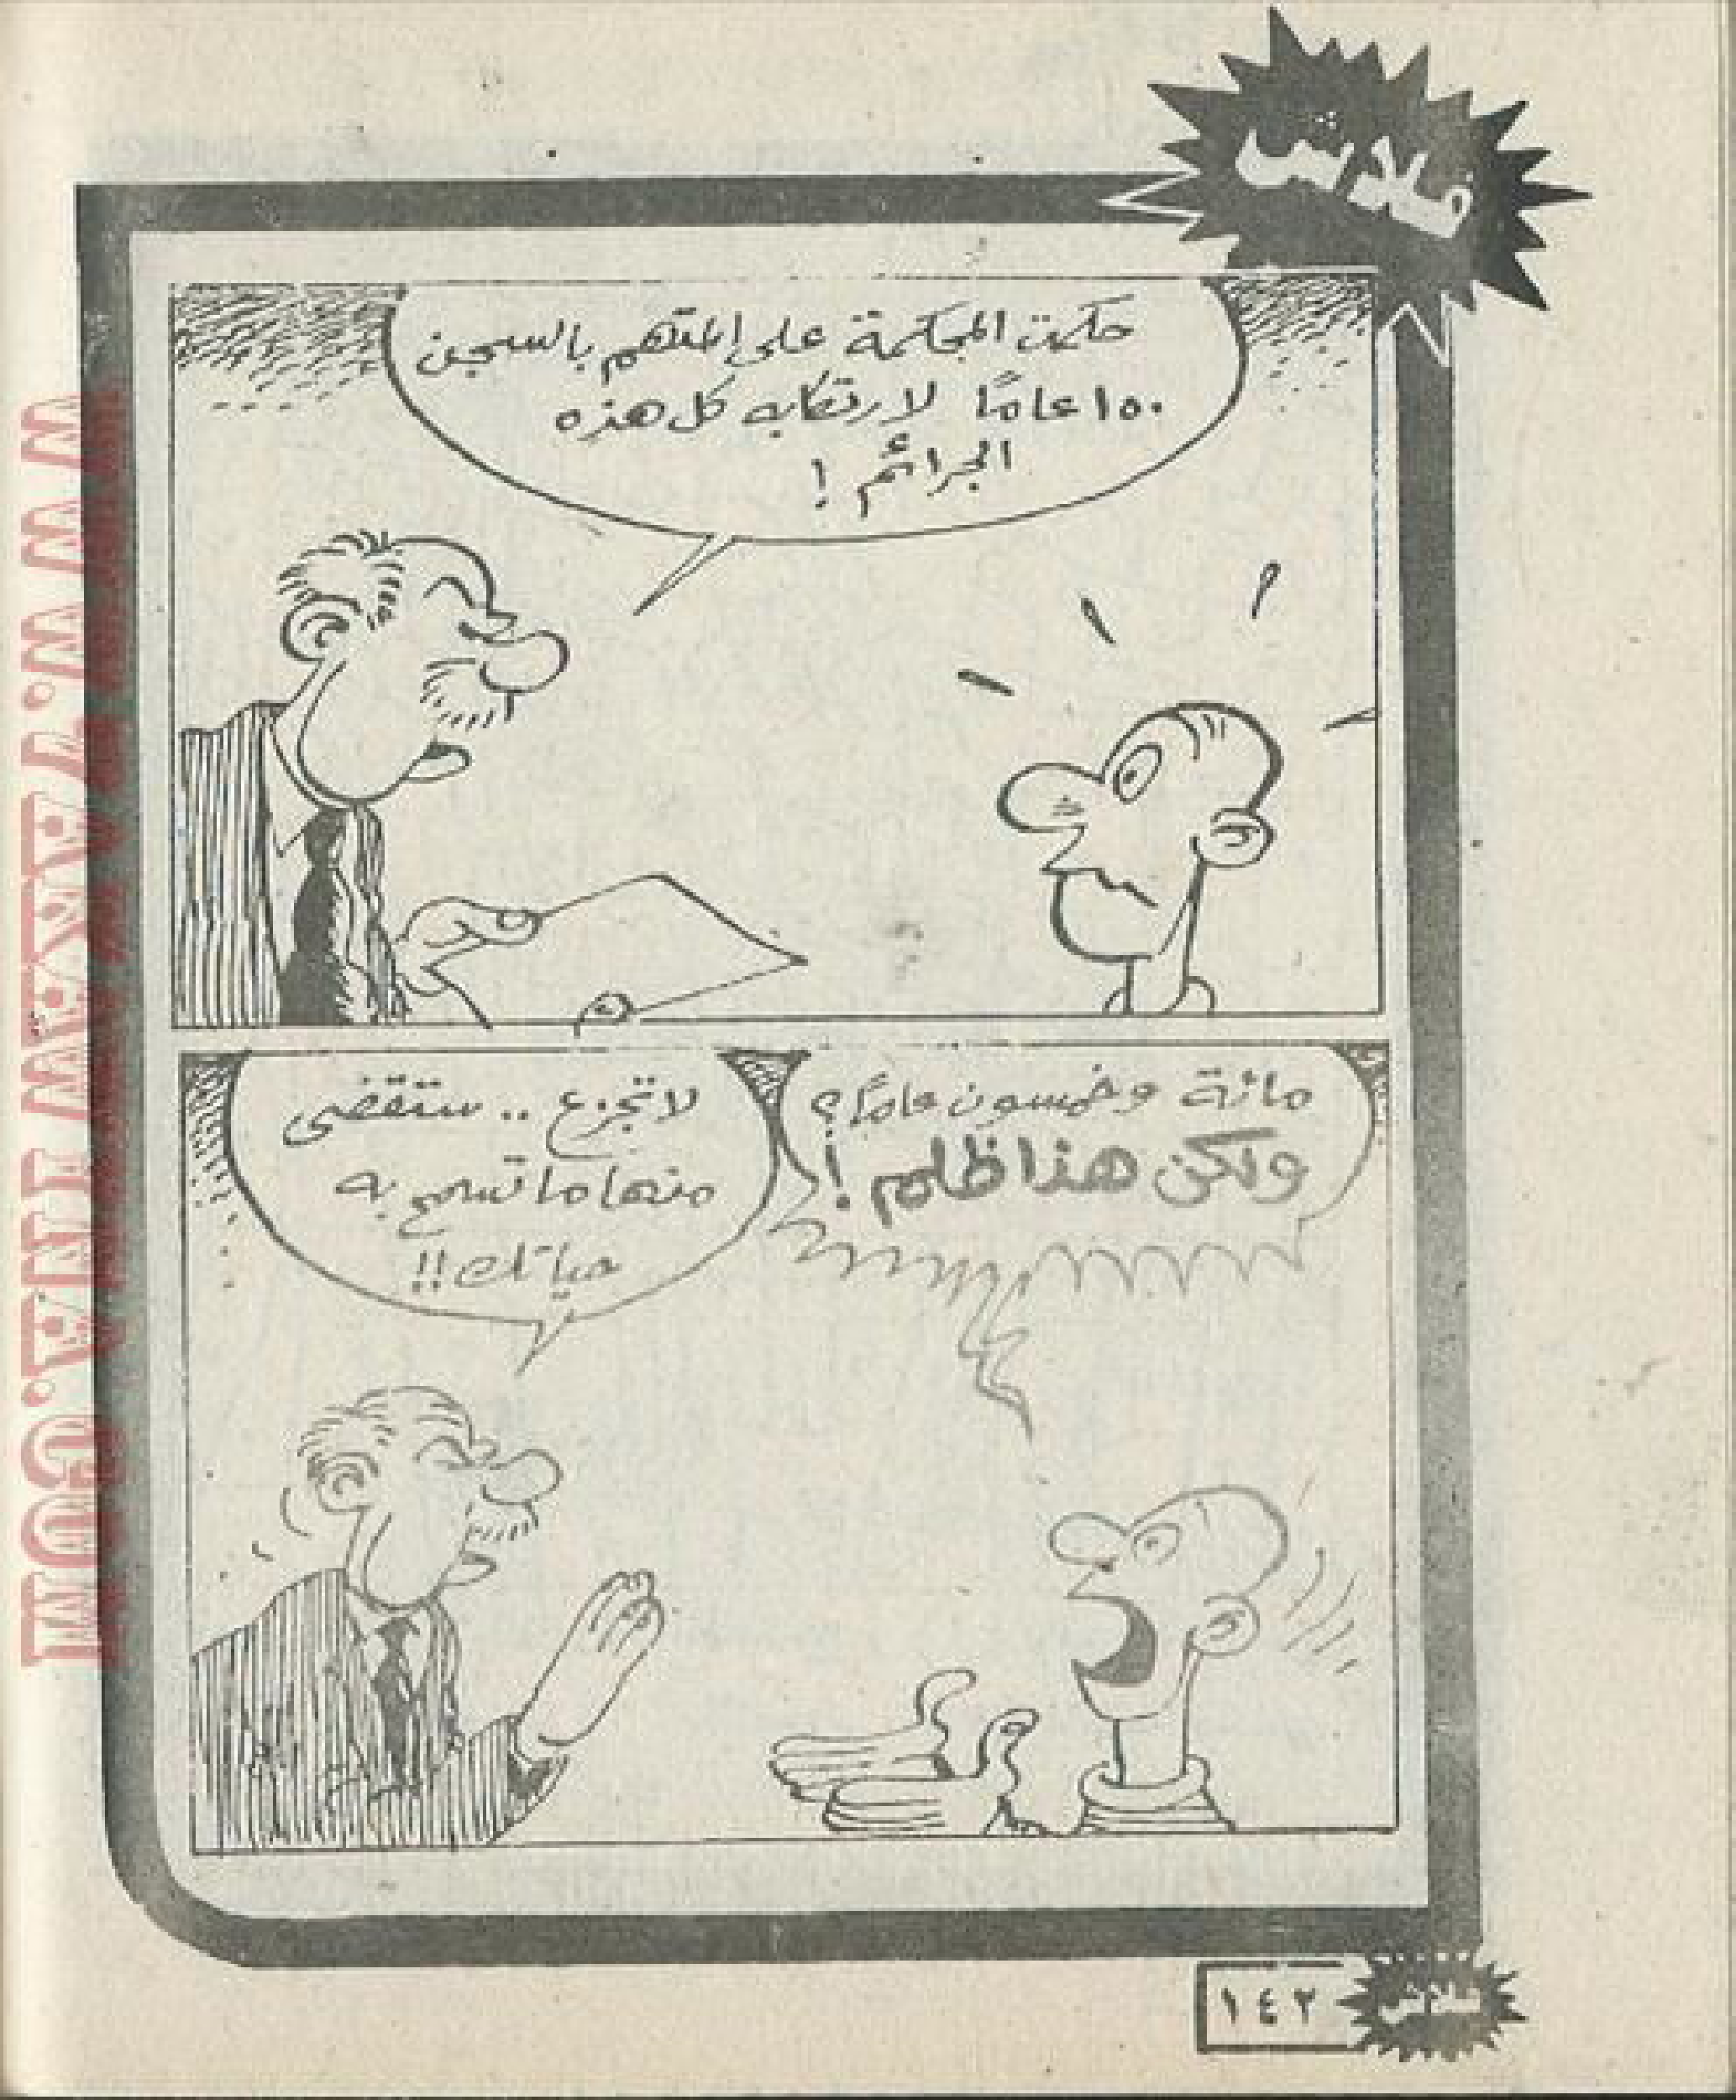 فلاش
حكمت المحكمة على المتهم بالسجن
١٥٠ عامًا لارتكابه كل هذه
الجرائم !
مائة وخمسون عامًا؟
ولكن هذا ظلم !
لا تجزع .. ستقضى
منها ما تسمح به
حياتك !!
١٤٢
فلاش
WWW.DVD4ARAB.COM